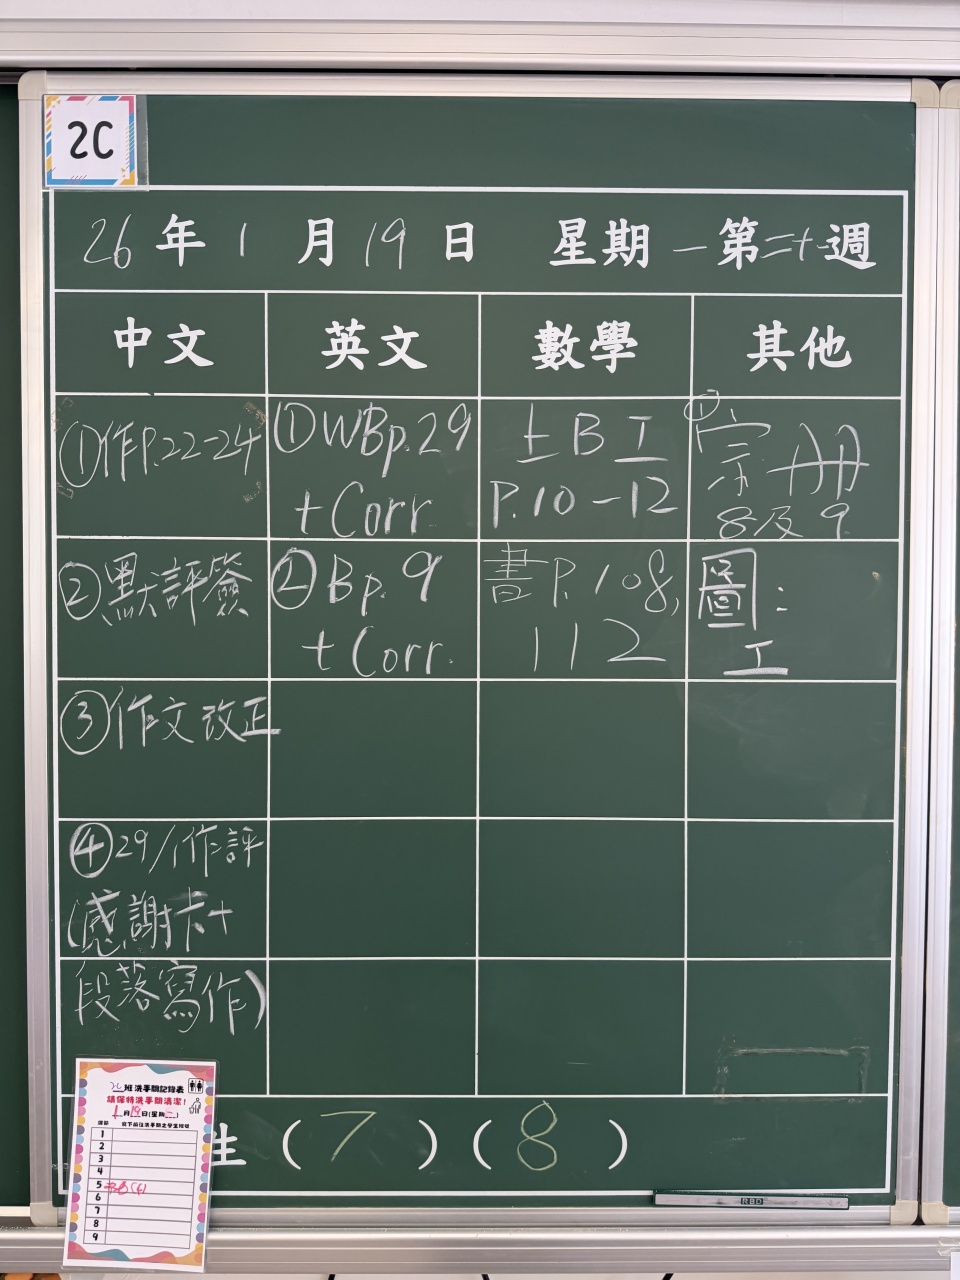 2C
26年1月19日 星期一第二十週
中文 英文 數學 其他
①作P.22-24
②默評簽
③作文改正
④29/1作評
(感謝卡+
段落寫作)
①WBp.29
+Corr.
②Bp.9
+Corr.
上B工
P.10-12
書P.108,
112
①
宗册
8及9
圖:
工
生(7)(8)
2C班洗手間記錄表
請保持洗手間清潔!
1月19日(星期一)
1
2
3
4
5
6
7
8
9
RBD